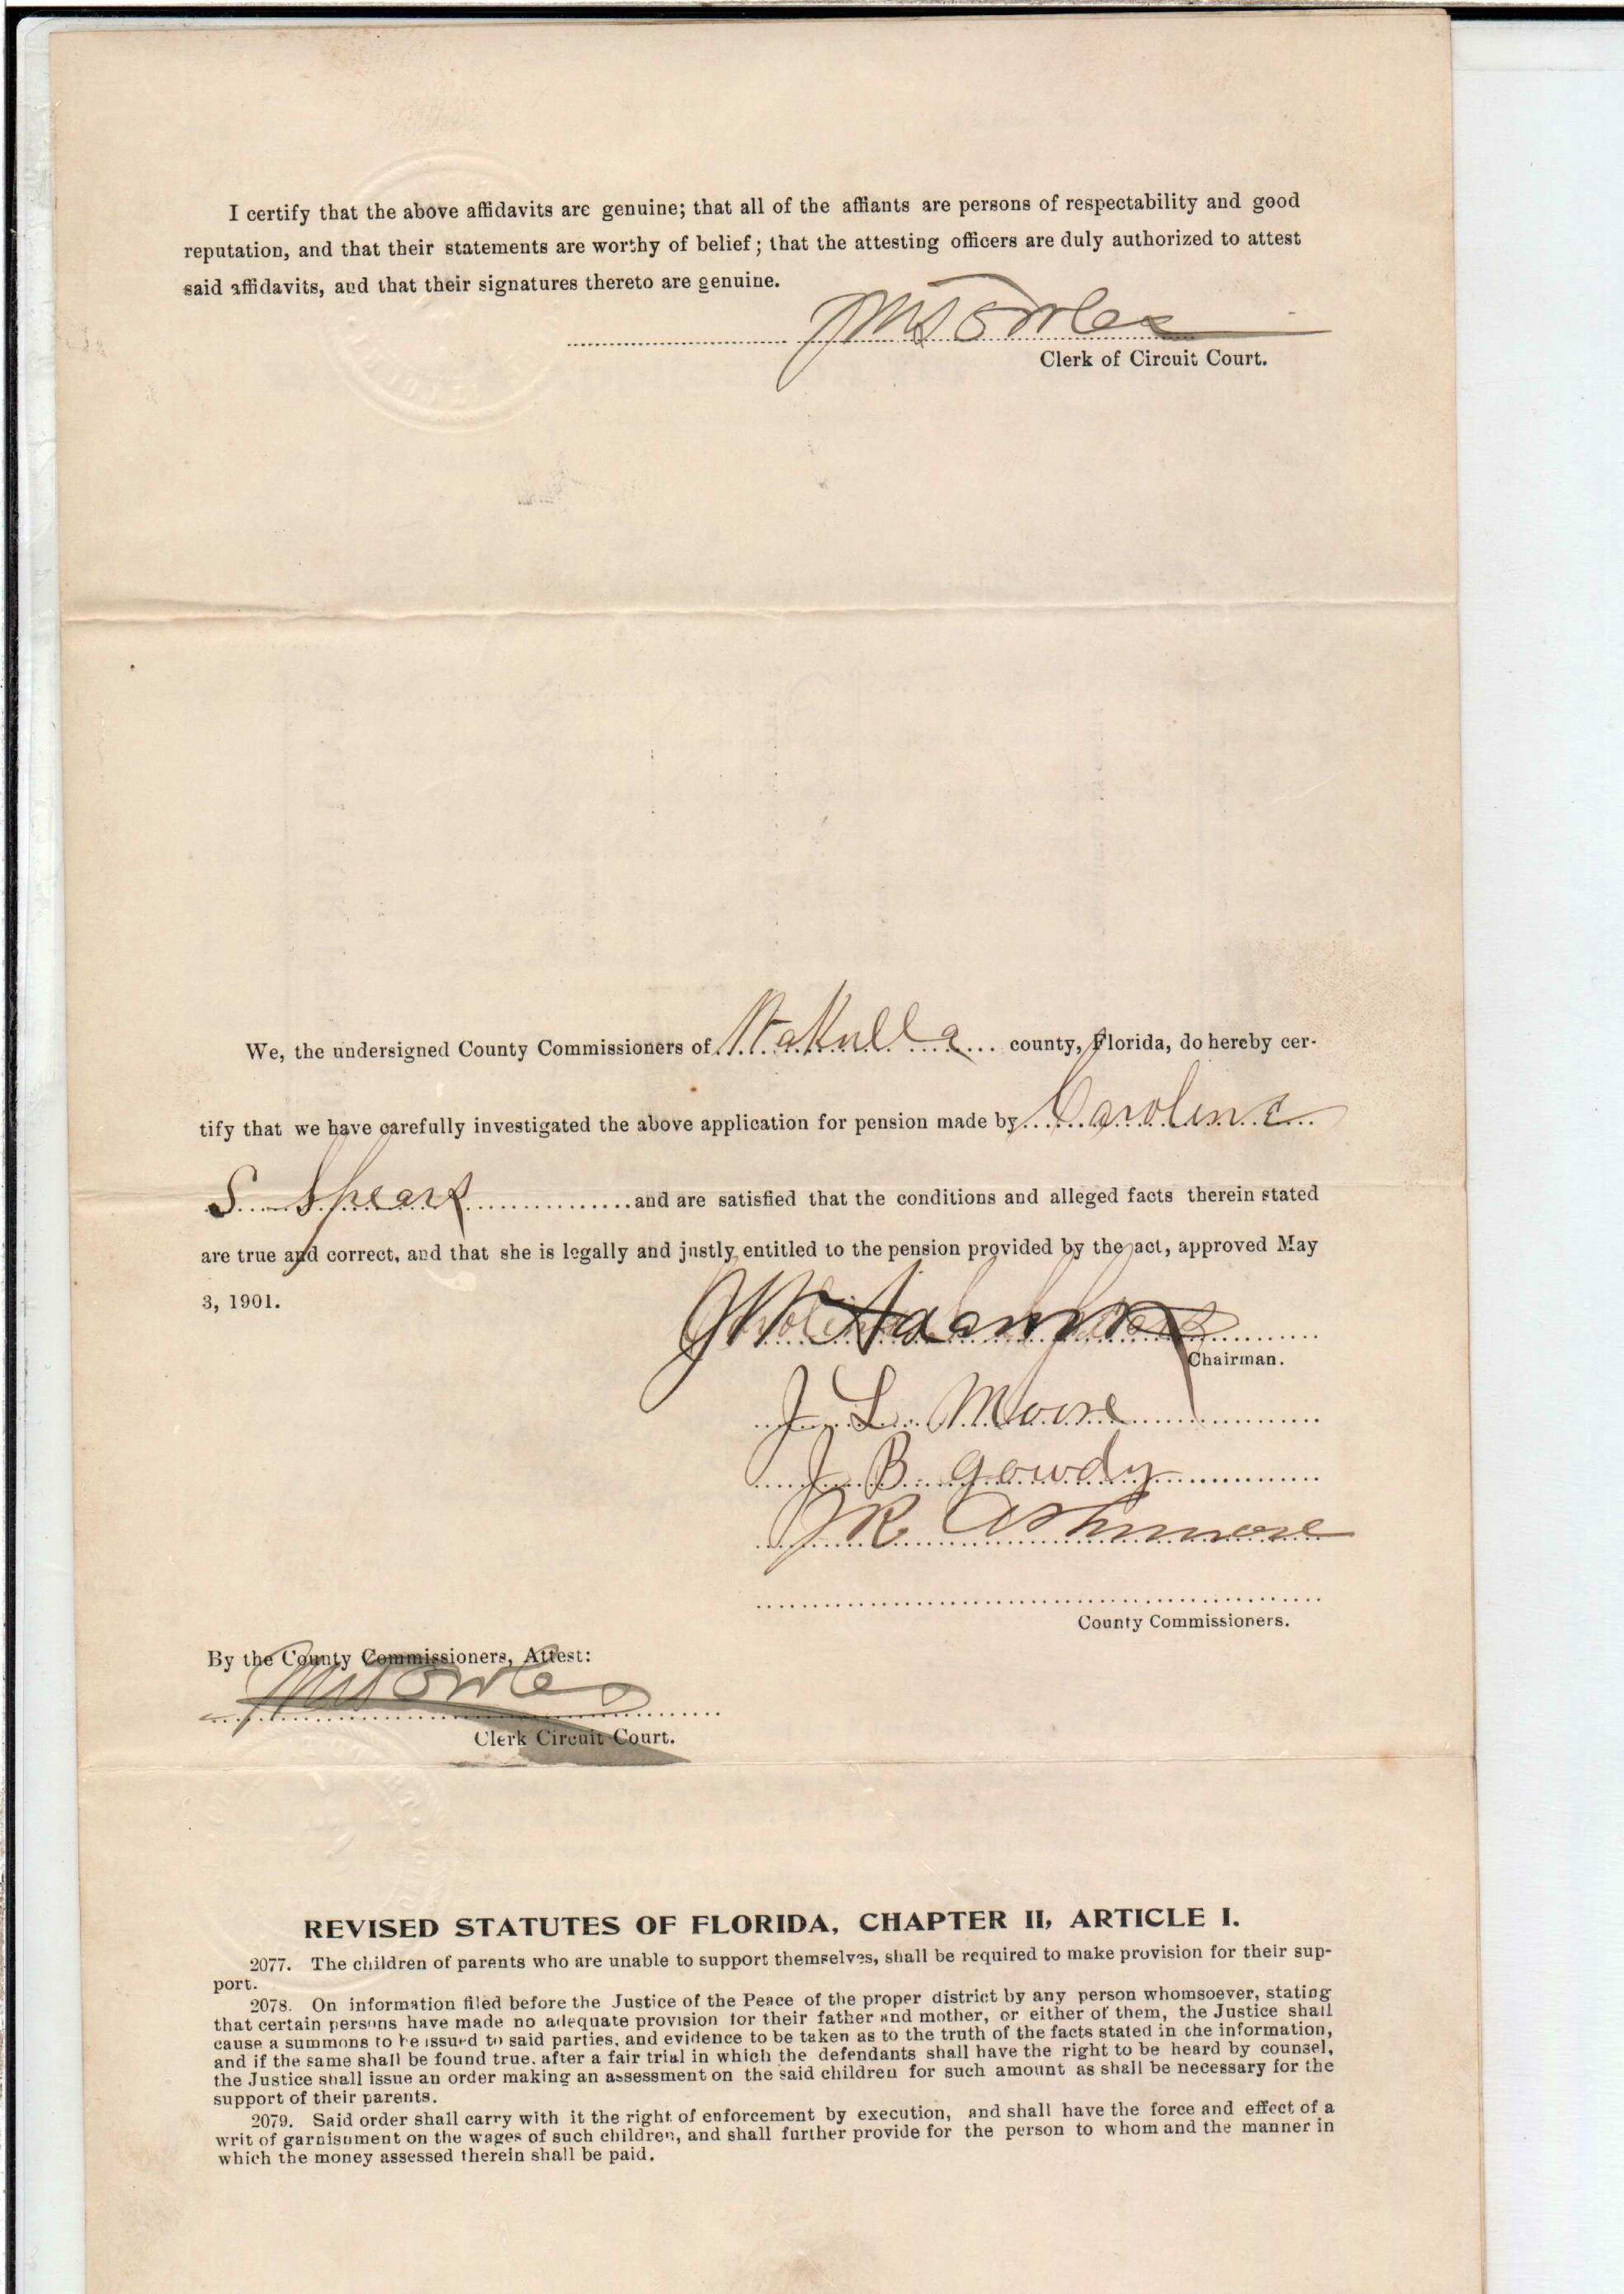 I certify that the above affidavits are genuine; that all of the affiants are persons of respectability and good
reputation, and that their statements are worthy of belief; that the attesting officers are duly authorized to attest
said affidavits, and that their signatures thereto are genuine.
Clerk of Circuit Court.
We, the undersigned County Commissioners of Wakulla county, Florida, do hereby cer-
tify that we have carefully investigated the above application for pension made by Caroline
S. Spears and are satisfied that the conditions and alleged facts therein stated
are true and correct, and that she is legally and justly entitled to the pension provided by the act, approved May
3, 1901.
Chairman.
J. L. Moore
J. B. Gowdy
J R Ashmore
County Commissioners.
By the County Commissioners, Attest:
Clerk Circuit Court.
REVISED STATUTES OF FLORIDA, CHAPTER II, ARTICLE I.
2077. The children of parents who are unable to support themselves, shall be required to make provision for their sup-
port.
2078. On information filed before the Justice of the Peace of the proper district by any person whomsoever, stating
that certain persons have made no adequate provision for their father and mother, or either of them, the Justice shall
cause a summons to be issued to said parties, and evidence to be taken as to the truth of the facts stated in the information,
and if the same shall be found true, after a fair trial in which the defendants shall have the right to be heard by counsel,
the Justice shall issue an order making an assessment on the said children for such amount as shall be necessary for the
support of their parents.
2079. Said order shall carry with it the right of enforcement by execution, and shall have the force and effect of a
writ of garnishment on the wages of such children, and shall further provide for the person to whom and the manner in
which the money assessed therein shall be paid.